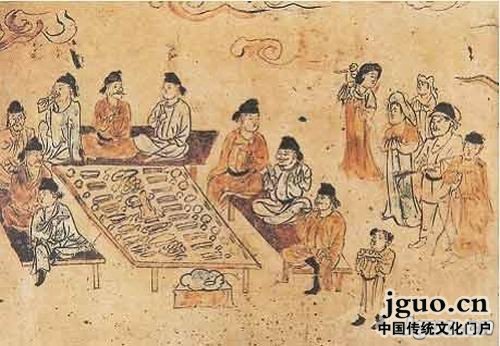 jguo.cn
中国传统文化门户